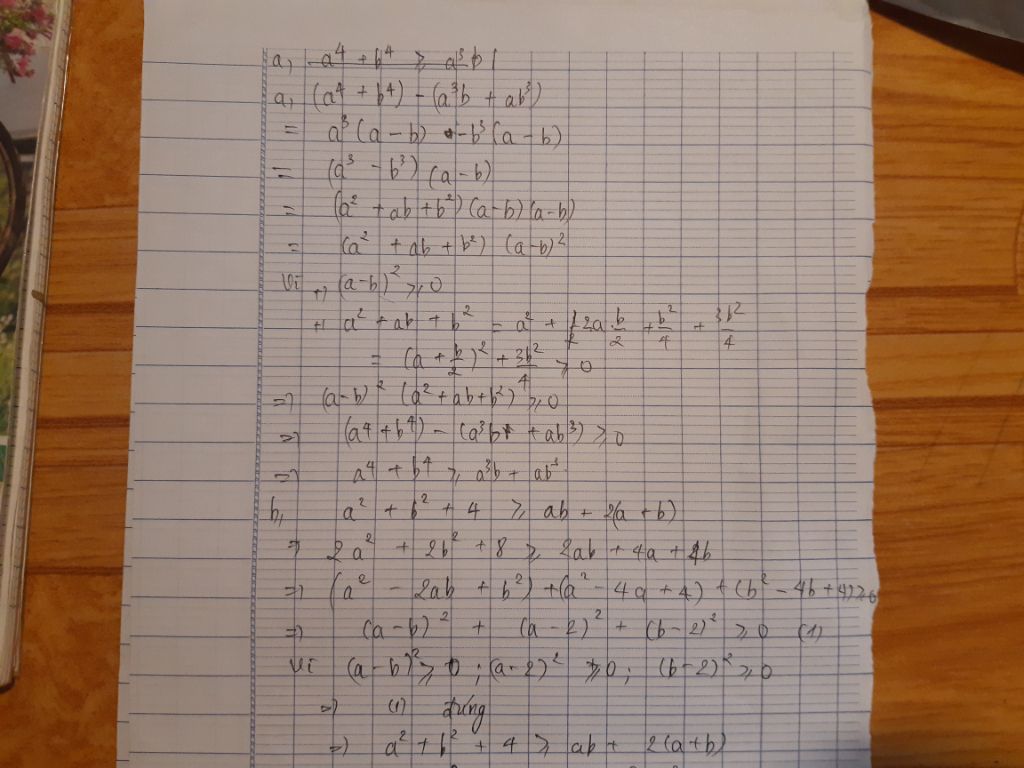 a, a⁴ + b⁴ ⩾ a³b
a, (a⁴ + b⁴) - (a³b + ab³)
= a³(a - b) - b³(a - b)
= (a³ - b³)(a - b)
= (a² + ab + b²)(a - b)(a - b)
= (a² + ab + b²) (a - b)²
Vì +, (a - b)² ⩾ 0
+, a² + ab + b² = a² + 2a b/2 + b²/4 + 3b²/4
= (a + b/2)² + 3b²/4 ⩾ 0
=> (a - b)² (a² + ab + b²) ⩾ 0
=> (a⁴ + b⁴) - (a³b + ab³) ⩾ 0
=> a⁴ + b⁴ ⩾ a³b + ab
b, a² + b² + 4 ⩾ ab + 2(a + b)
=> 2a² + 2b² + 8 ⩾ 2ab + 4a + 4b
=> (a² - 2ab + b²) + (a² - 4a + 4) + (b² - 4b + 4) ⩾ 0
=> (a - b)² + (a - 2)² + (b - 2)² ⩾ 0 (1)
Vì (a - b)² ⩾ 0 ; (a - 2)² ⩾ 0 ; (b - 2)² ⩾ 0
=> (1) đúng
=> a² + b² + 4 ⩾ ab + 2(a + b)